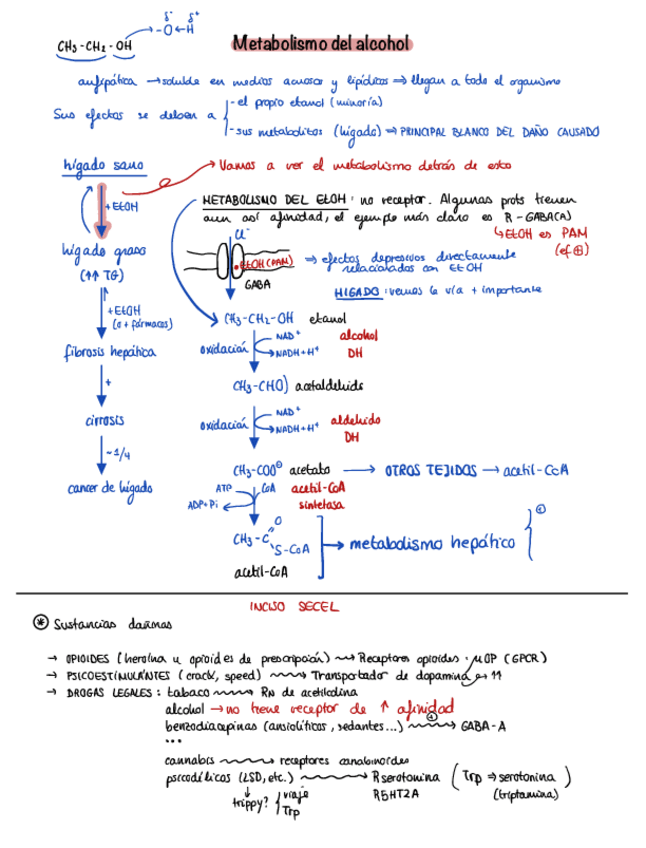 δ⁻ δ⁺
-O←H
CH₃-CH₂-OH
Metabolismo del alcohol
anfipática → soluble en medios acuosos y lipídicos ⇒ llegan a todo el organismo
Sus efectos se deben a
- el propio etanol (minoría)
- sus metabolitos (hígado) ⇒ PRINCIPAL BLANCO DEL DAÑO CAUSADO
hígado sano
→ Vamos a ver el metabolismo detrás de esto
+ EtOH
hígado graso
(↑↑ TG)
+ EtOH
(o + fármacos)
fibrosis hepática
+
cirrosis
~1/4
cancer de hígado
METABOLISMO DEL EtOH: no receptor. Algunas prots tienen
aun así afinidad, el ejemplo más claro es R-GABA(A)
↳ EtOH es PAM
(ef ⊕)
Cl⁻
EtOH (PAM)
GABA
⇒ efectos depresivos directamente
relacionados con EtOH
HIGADO: vemos la vía + importante
CH₃-CH₂-OH etanol
oxidación
NAD⁺
NADH+H⁺
alcohol
DH
CH₃-CHO) acetaldehido
oxidación
NAD⁺
NADH+H⁺
aldehido
DH
CH₃-COO⊖ acetato → OTROS TEJIDOS → acetil-CoA
ATP
CoA
ADP+Pi
acetil-CoA
sintetasa
CH₃-C
O
S-CoA
acetil-CoA
→ metabolismo hepático
INCISO SECEL
* Sustancias dañinas
→ OPIOIDES (heroína u opioides de prescripción) → Receptores opioides · μOP (GPCR)
→ PSICOESTIMULANTES (crack, speed) → Transportador de dopamina ↑↑
→ DROGAS LEGALES: tabaco → RN de acetilcolina
alcohol → no tiene receptor de ↑ afinidad
benzodiacepinas (ansiolíticos, sedantes...) → GABA-A
...
cannabis → receptores canabinoides
psicodélicos (LSD, etc.) → R serotonina (Trp ⇒ serotonina)
R5HT2A
(triptamina)
↓
trippy?
viaje
Trp